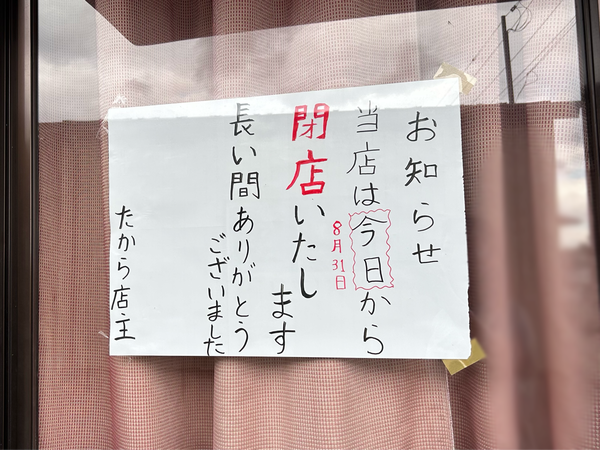 お知らせ
当店は今日から
8月31日
閉店いたします
長い間ありがとう
ございました
たから店主